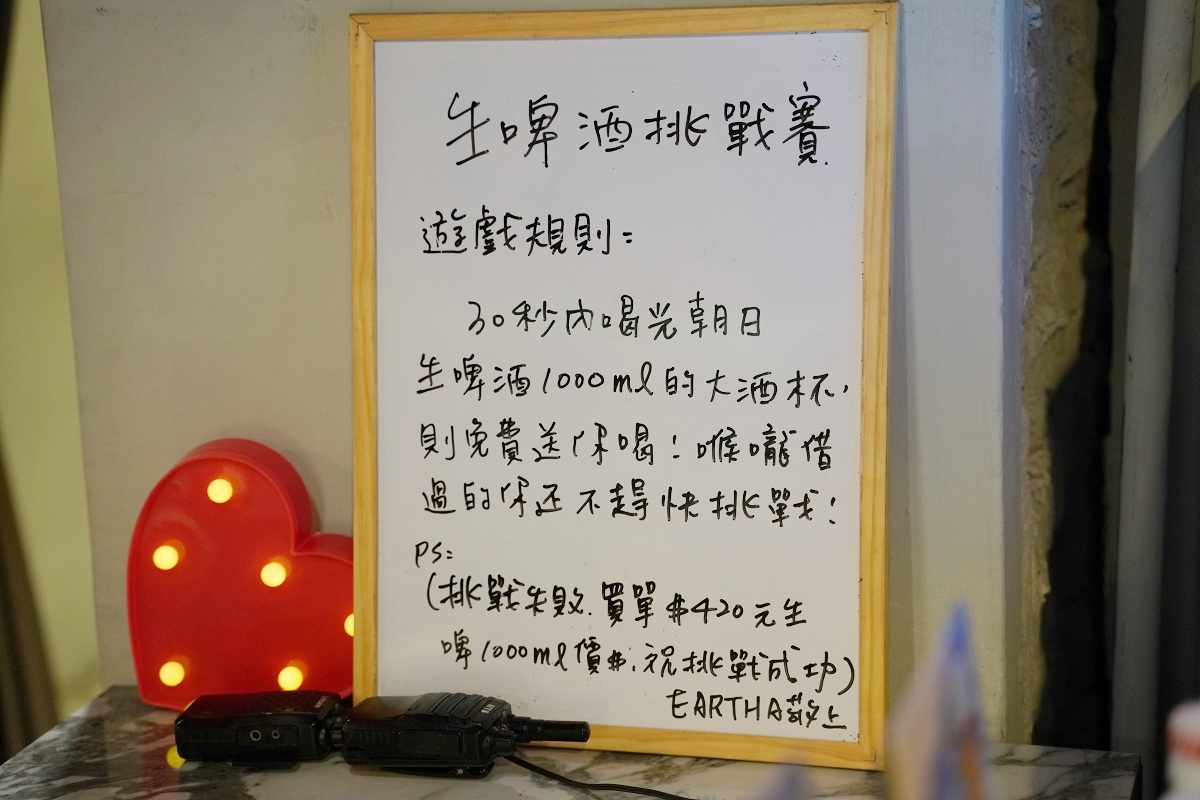 生啤酒挑戰賽
遊戲規則:
30秒內喝光朝日
生啤酒1000ml的大酒杯,
則免費送你喝!喉嚨借
過的你还不趕快挑戰!
PS:
(挑戰失敗.買單$420元生
啤1000ml價$,祝挑戰成功)
EARTHA敬上